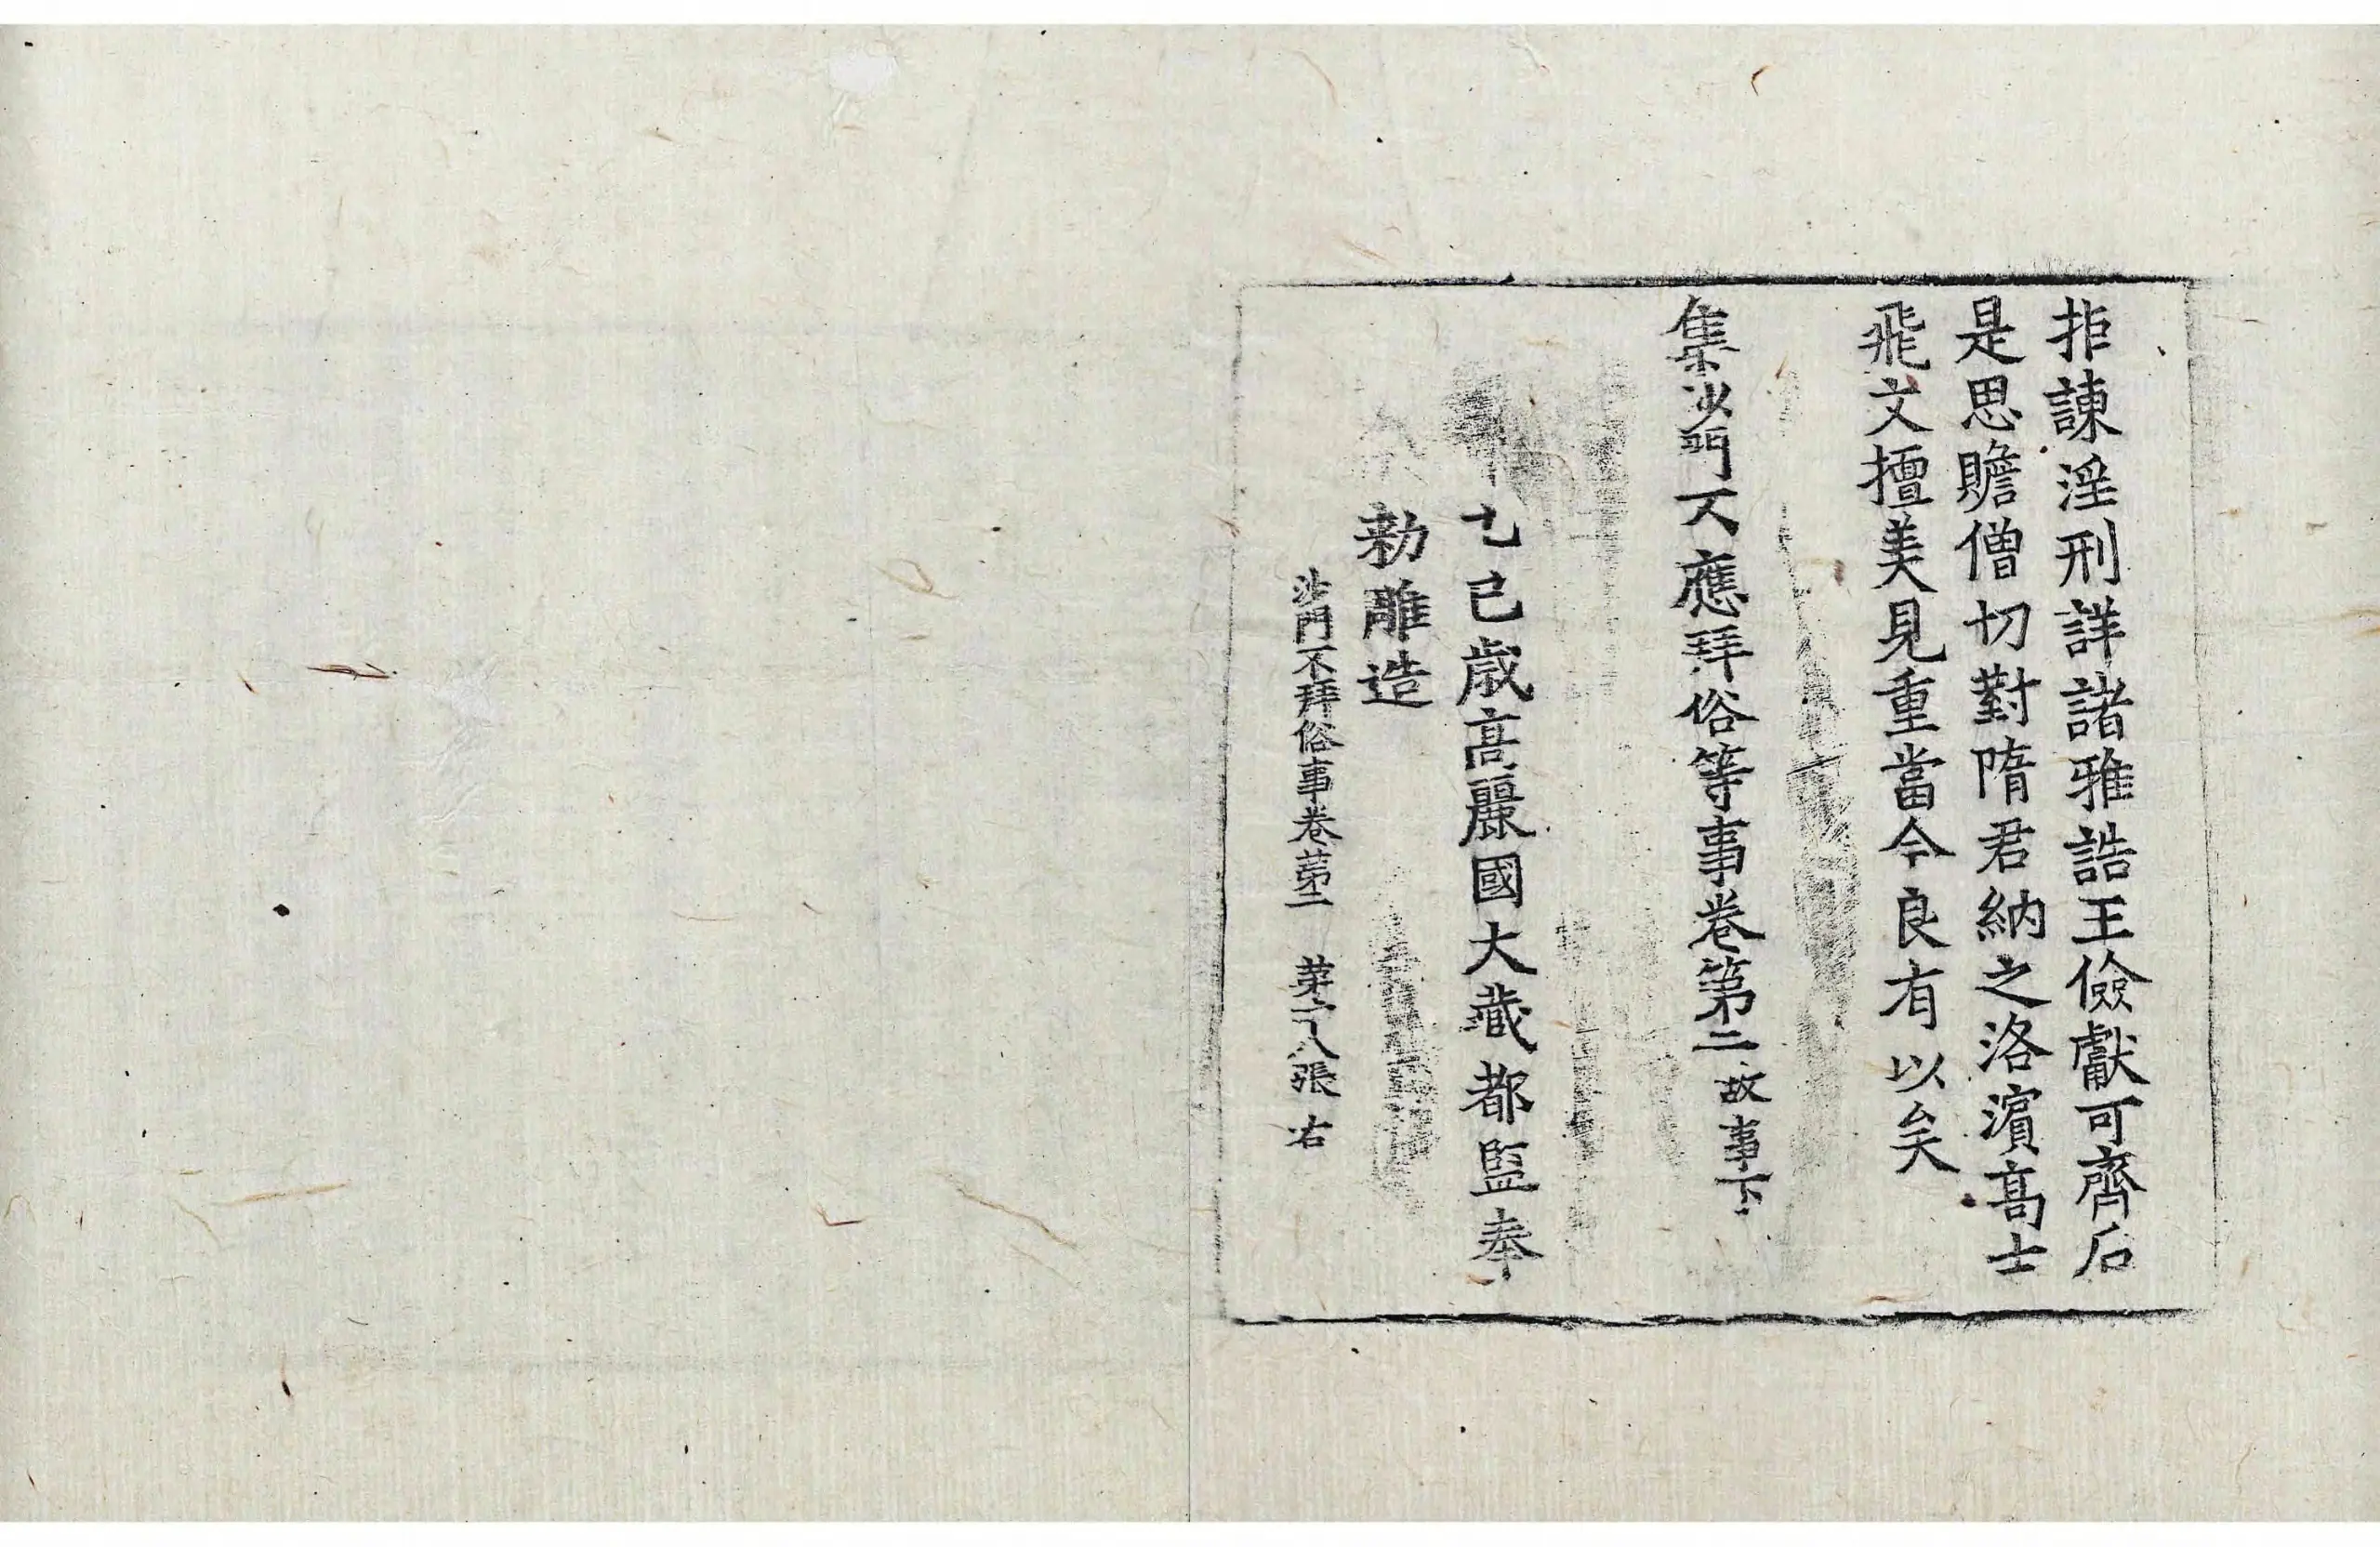 拒諫淫刑詳諸雅誥王儉獻可齊后
是思贍僧切對隋君納之洛濵髙士
飛文擅美見重當今良有以矣
集沙門不應拜俗等事卷第二 故事下
巳歳髙麗國大藏都監奉
勑雕造
沙門不拜俗事卷第二 第 八張 右